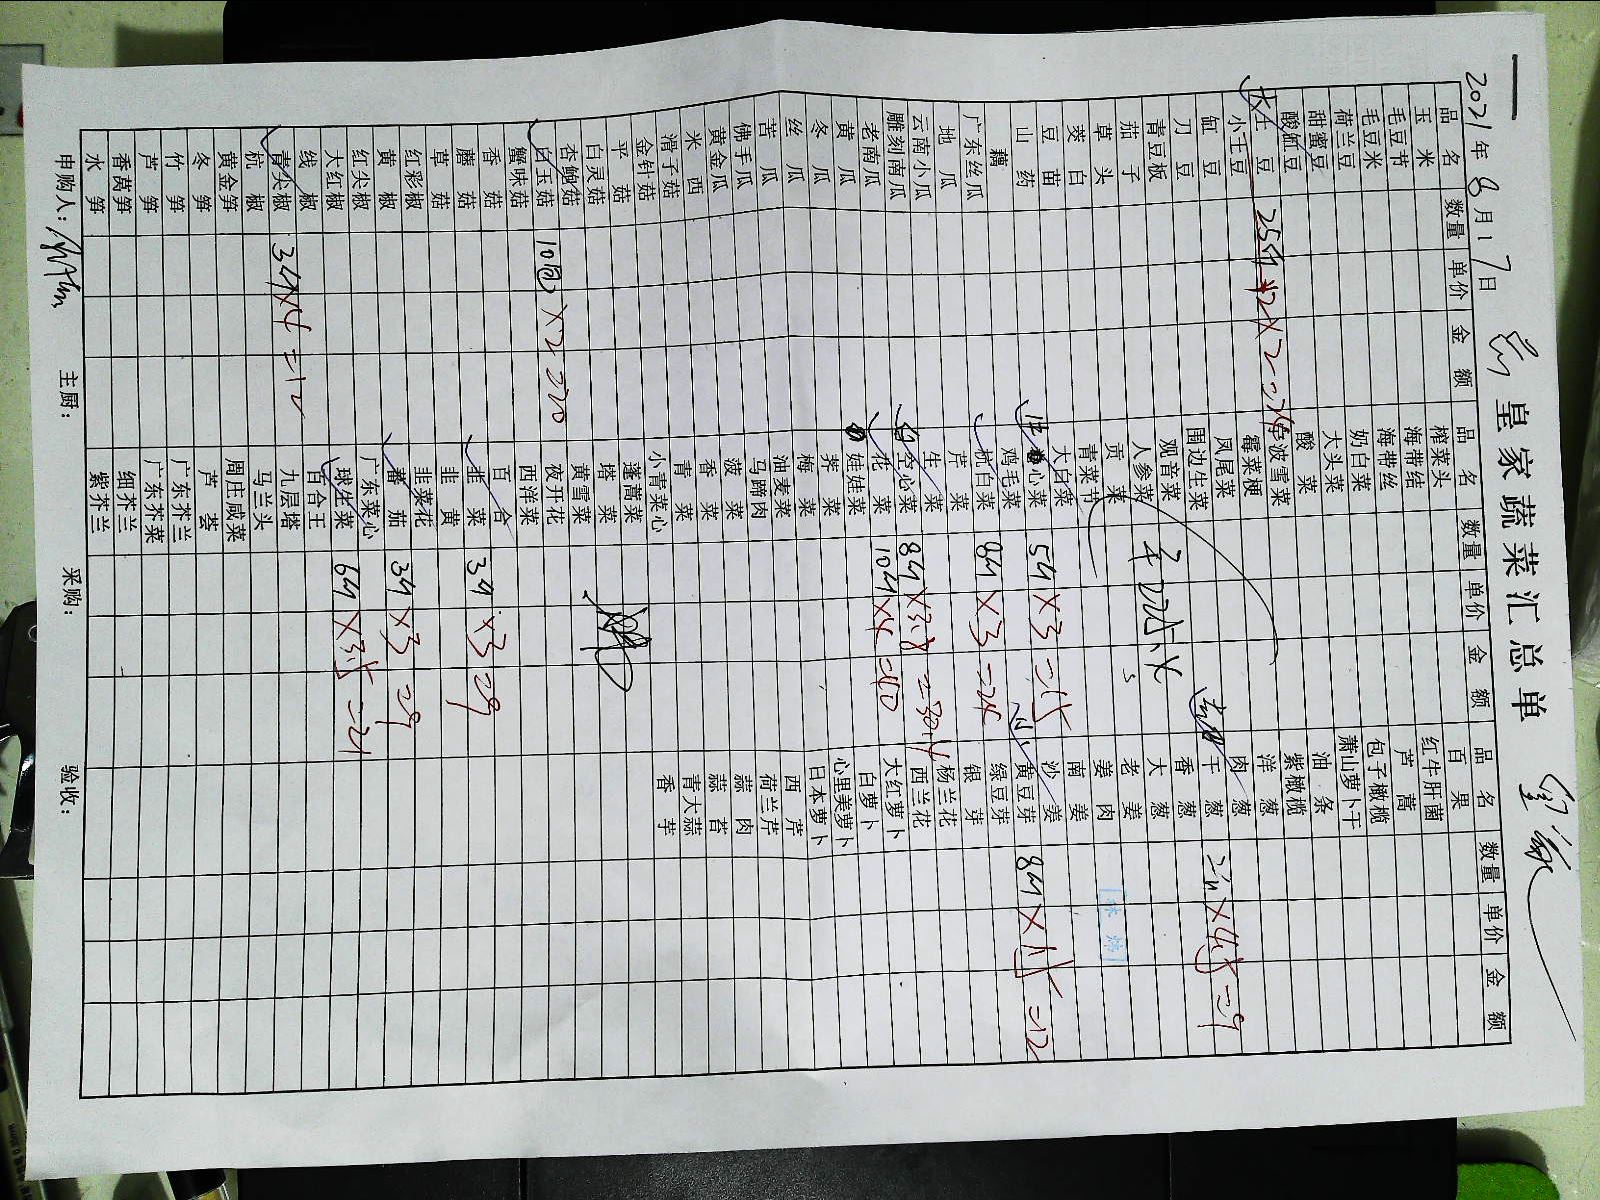 2021年 8月17日
皇家蔬菜汇总单
品名 数量 单价 金额 品名 数量 单价 金额 品名 数量 单价 金额
玉米 榨菜头 百果
毛豆节 海带结 红牛肝菌
毛豆米 海带丝 芦蒿
荷兰豆 奶白菜 包子橄榄
甜蜜豆 大头菜 萧山萝卜干
酸豇豆 酸菜 油条
大土豆 25斤 ×2 宁波雪菜 紫橄榄
小土豆 霉菜梗 洋葱
豇豆 凤尾菜 肉葱
刀豆 围边生菜 干葱 2斤×4.5=9
青豆板 观音菜 香葱
茄子 人参菜 大葱
草头 贡菜 老姜
茭白 青菜节 姜肉
豆苗 大白菜 南姜
山药 心菜 5斤×3=15 沙姜
藕 鸡毛菜 黄豆芽 8斤×1.5=12
广东丝瓜 杭白菜 8斤×3=24 绿豆芽
地瓜 芹菜 银芽
云南小瓜 生菜 杨兰花
雕刻南瓜 空心菜 8斤×3.8=30.4 西兰花
老南瓜 花菜 10斤×4=40 大红萝卜
黄瓜 娃娃菜 白萝卜
冬瓜 荠菜 心里美萝卜
丝瓜 梅菜 日本萝卜
苦瓜 油麦菜 西芹
佛手瓜 马蹄肉 荷兰芹
黄金瓜 菠菜 蒜肉
西米 香菜 蒜苔
滑子菇 青菜 青大蒜
金针菇 小青菜心 香芋
平菇 蓬蒿菜
白灵菇 塔菜
杏鲍菇 黄雪菜
白玉菇 10包×2=20 夜开花
蟹味菇 西洋菜
香菇 百合
蘑菇 韭菜 3斤×3=9
草菇 韭黄
红彩椒 韭菜花
黄椒 蕃茄 3斤×3=9
红尖椒 广东菜心
大红椒 球生菜 6斤×3.5=21
线椒 百合王
青尖椒 3斤×4=12 九层塔
杭椒 马兰头
黄金笋 周庄咸菜
冬笋 芦荟
竹笋 广东芥兰
芦笋 广东芥菜
香莴笋 细芥兰
水笋 紫芥兰
申购人: 主厨: 采购: 验收: